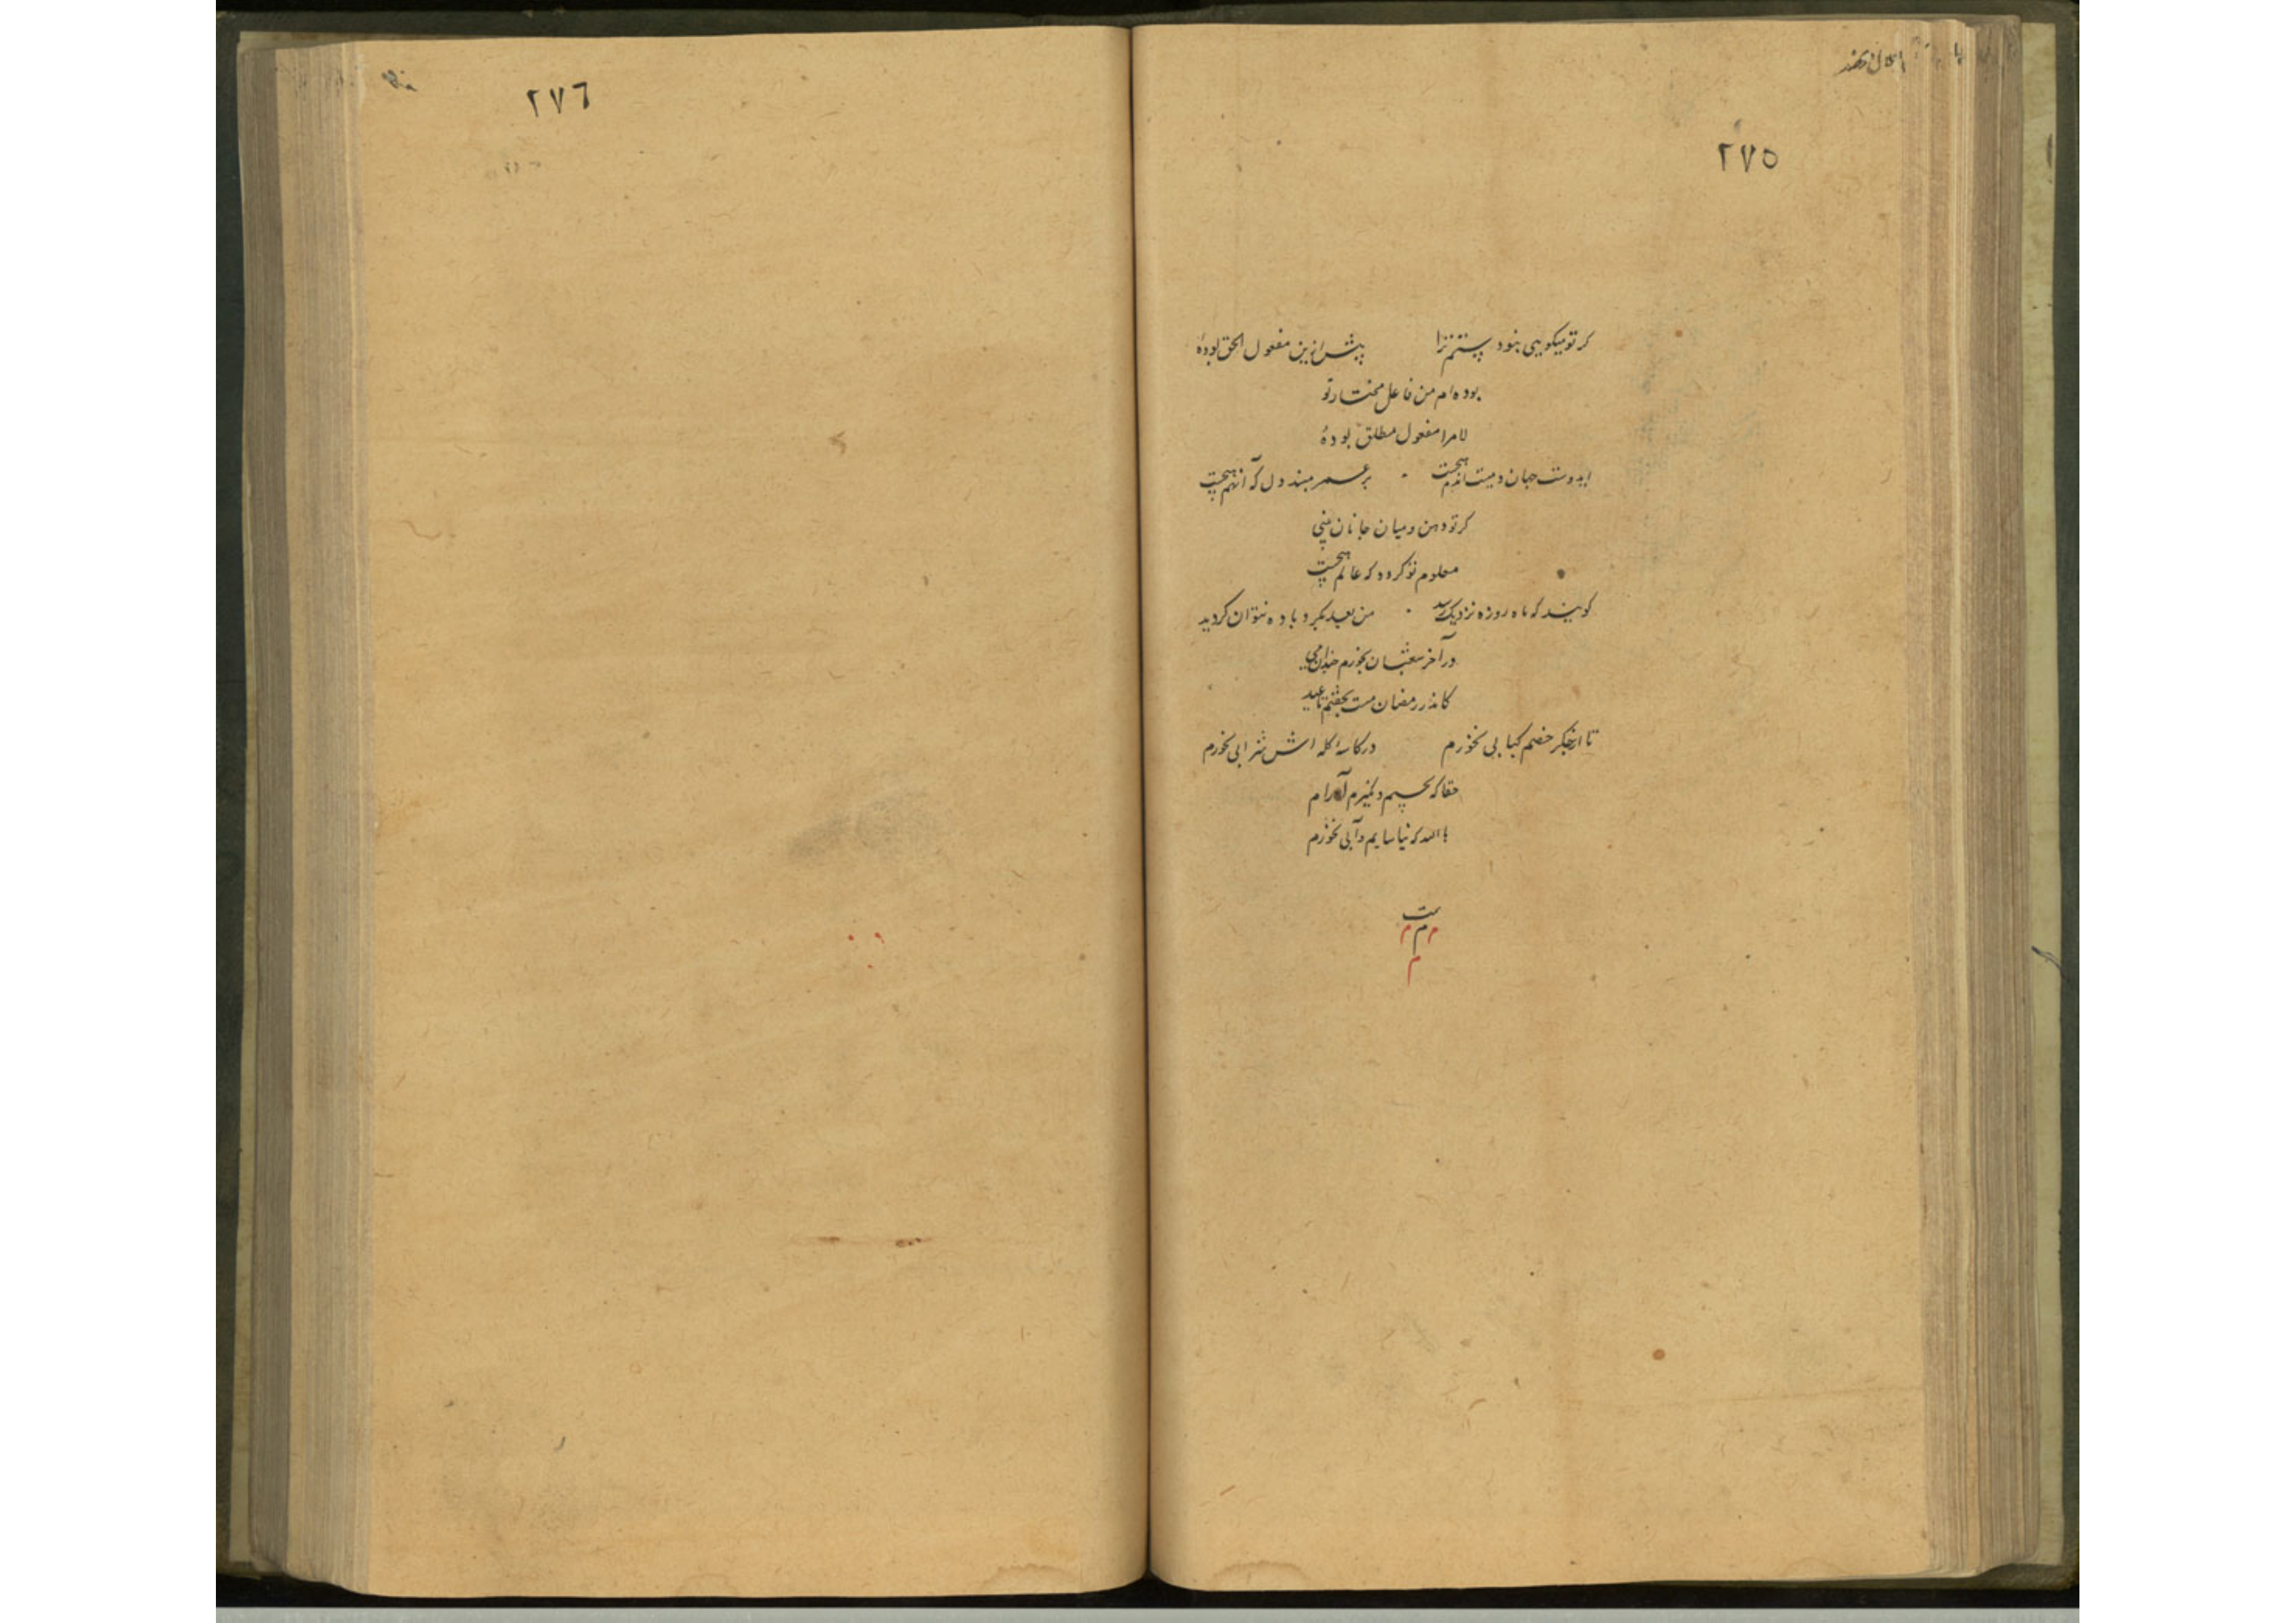 ٢٧٥
کر تو میکویی بنود پستم ترا پیش ازین مفعول الحق بودهٔ
بوده ام من فاعل مختار تو
لا مرا مفعول مطلق بودهٔ
ایدوست جهان و هیچست بر عمر مبند دل که آنهم هیچست
کر تو دهن و میان جانان بینی
معلوم تو کردد که عالم هیچست
کویند که ماه روزه نزدیک رسید من بعد بکرد باده نتوان کردید
در آخر شعبان بخورم چندان می
کاندر رمضان مست بخفتم تا عید
تا از جکر خصم کبابی نخورم در کاسه کله اش شرابی نخورم
حقا که نچسبم و نکیرم آرام
با الله که نیاسایم و آبی نخورم
تمت
م م م
م
٢٧٦